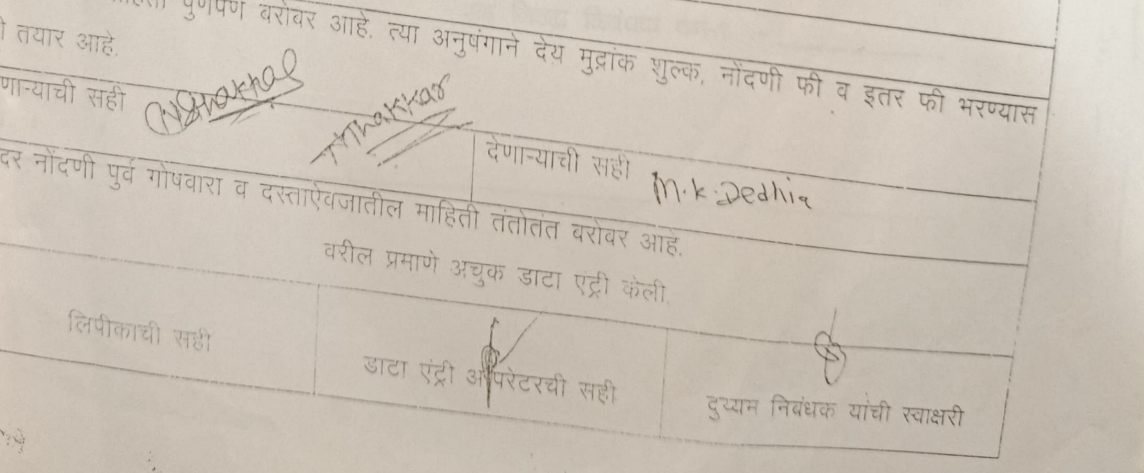 पुर्णपणे बरोबर आहे. त्या अनुषंगाने देय मुद्रांक शुल्क, नोंदणी फी व इतर फी भरण्यास
तयार आहे.
णाऱ्याची सही
Thakkar
देणाऱ्याची सही M.K.Dedhia
दर नोंदणी पुर्व गोषवारा व दस्ताऐवजातील माहिती तंतोतंत बरोबर आहे.
वरील प्रमाणे अचुक डाटा एंट्री केली.
लिपीकाची सही
डाटा एंट्री ऑपरेटरची सही
दुय्यम निबंधक यांची स्वाक्षरी